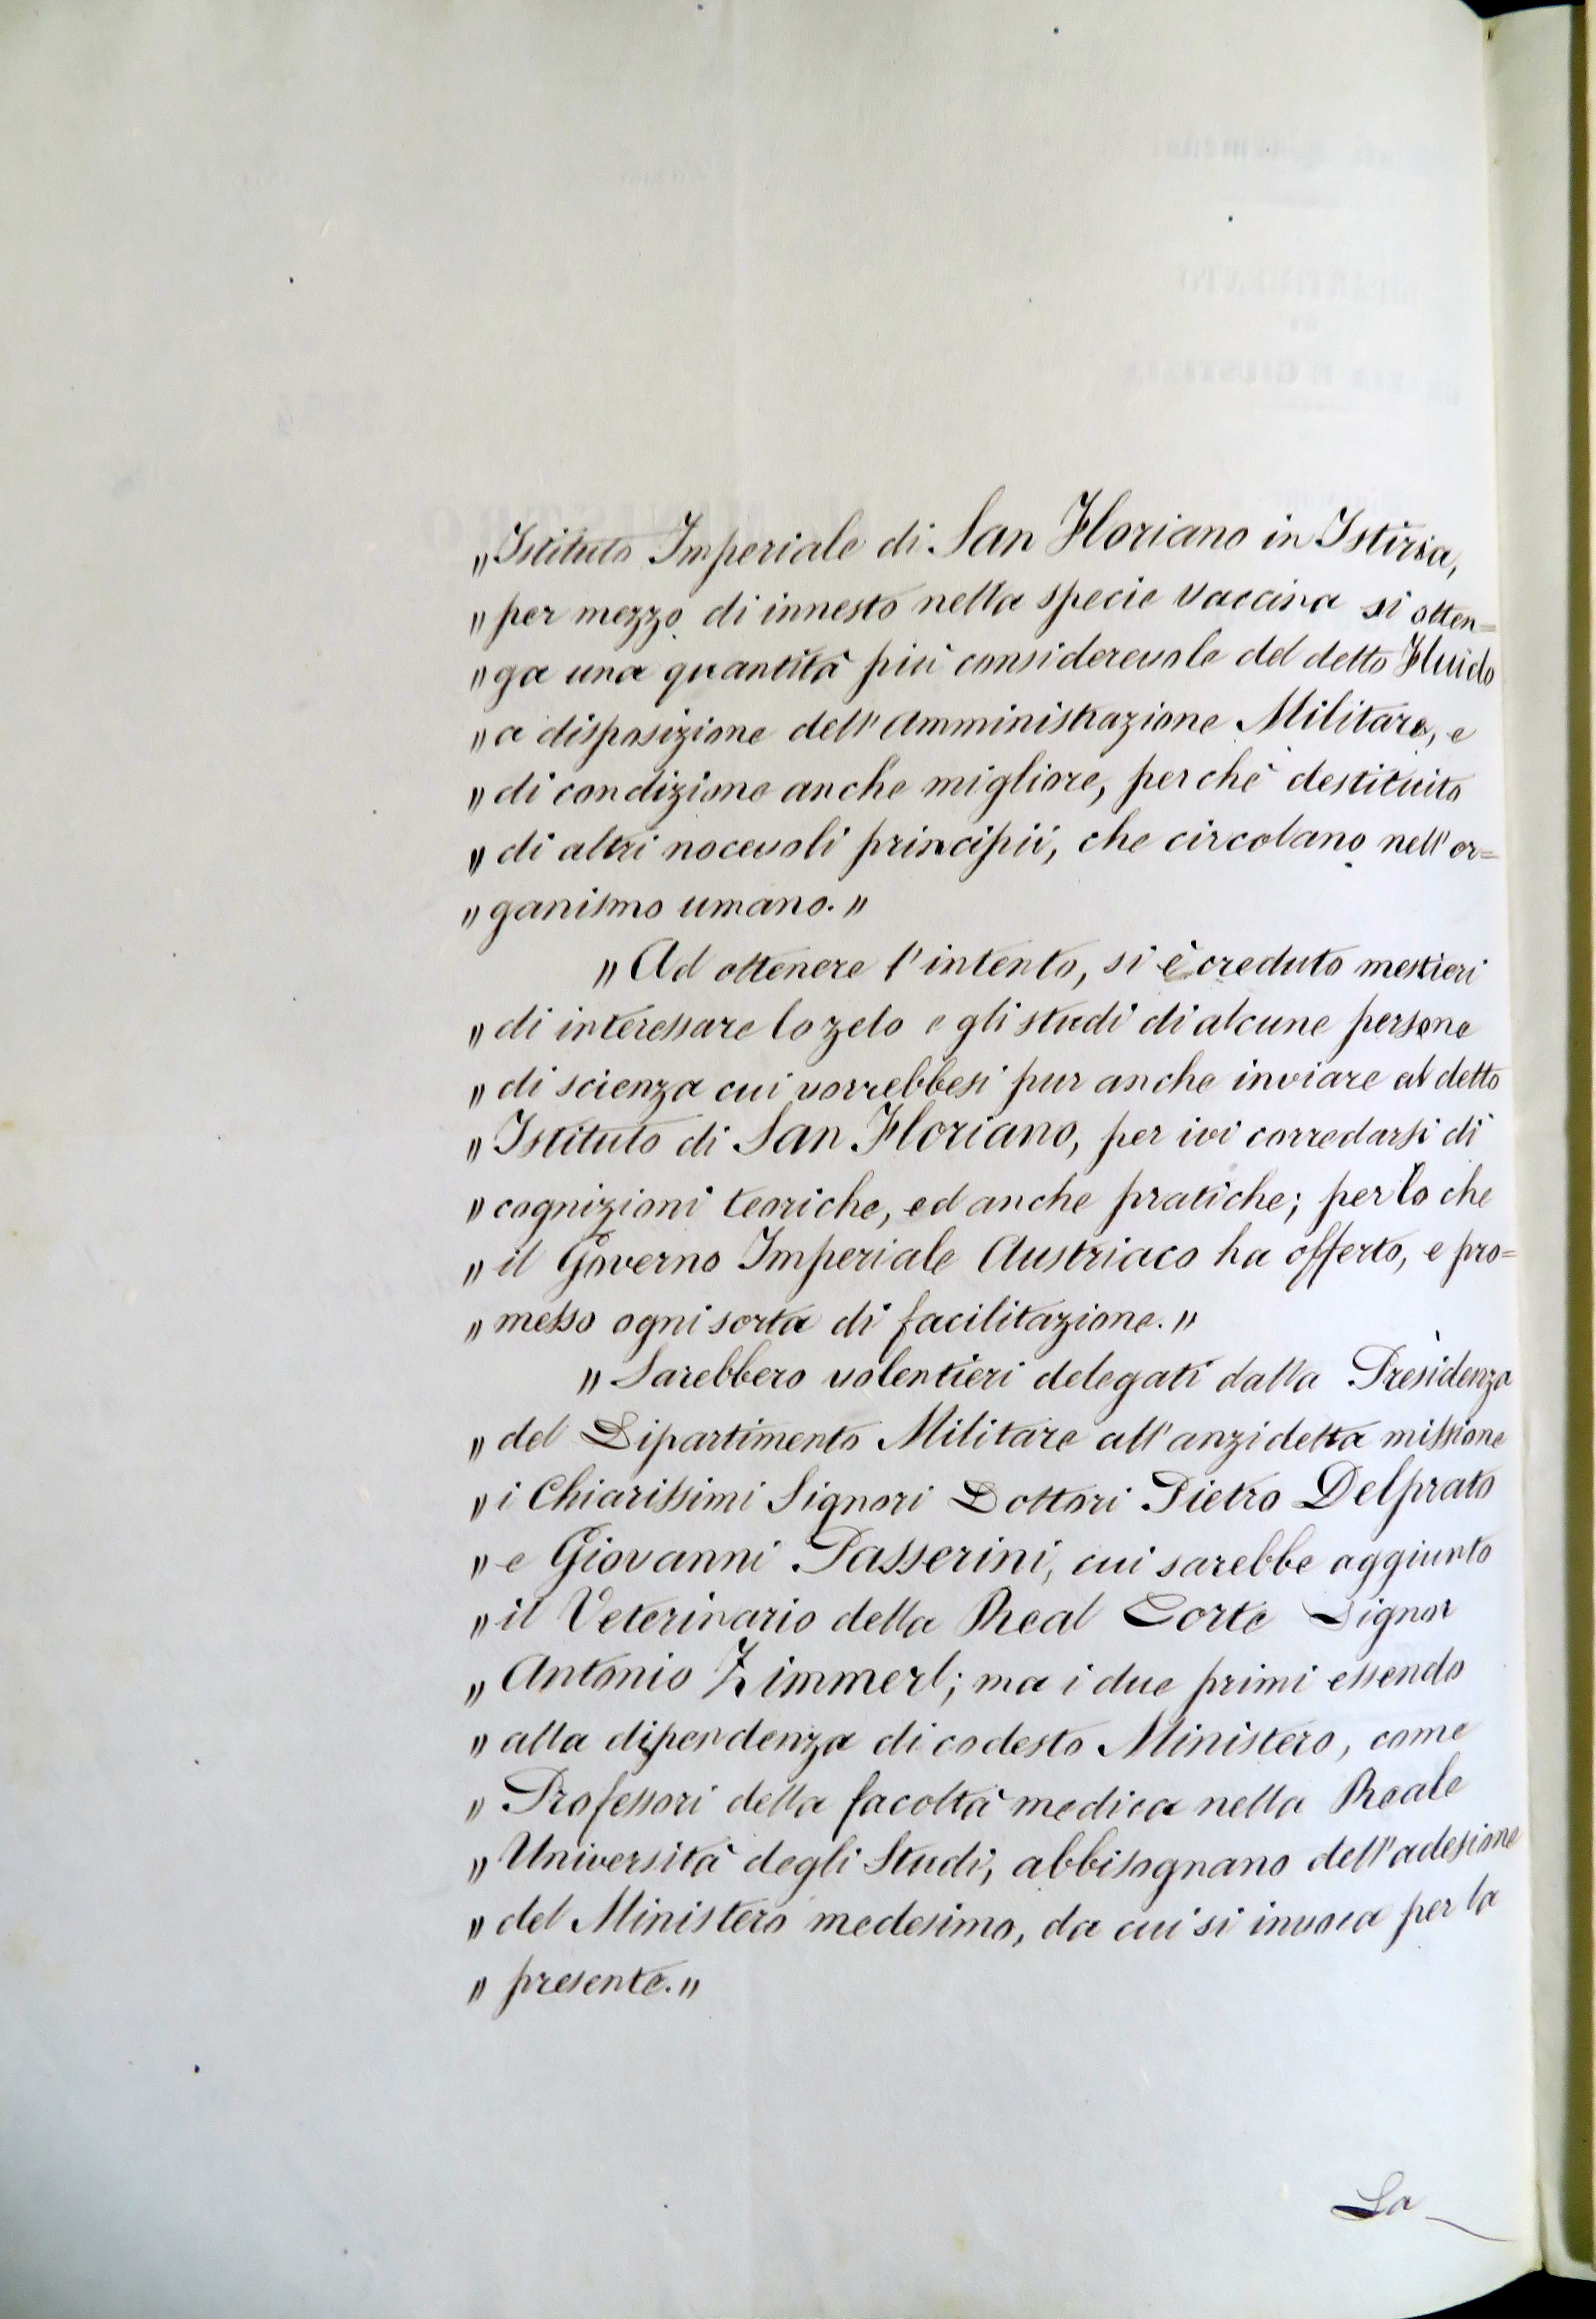 „Istituto Imperiale di San Floriano in Istiria,
„ per mezzo di innesto nella specie vaccina si otten=
„ ga una quantità più considerevole del detto Fluido
„ a disposizione dell'Amministrazione Militare, e
„ di condizione anche migliore, perchè destituito
„ di altri nocevoli principii, che circolano nell'or=
„ ganismo umano.„
„ Ad ottenere l'intento, si è creduto mestieri
„ di interessare lo zelo e gli studi di alcune persone
„ di scienza cui vorrebbesi pur anche inviare al detto
„ Istituto di San Floriano, per ivi corredarsi di
„ cognizioni teoriche, ed anche pratiche; per lo che
„ il Governo Imperiale Austriaco ha offerto, e pro=
„ messo ogni sorta di facilitazione.„
„ Sarebbero volentieri delegati dalla Presidenza
„ del Dipartimento Militare all'anzidetta missione
„ i Chiarissimi Signori Dottori Pietro Delprato
„ e Giovanni Passerini, cui sarebbe aggiunto
„ il Veterinario della Real Corte Signor
„ Antonio Zimmerl; ma i due primi essendo
„ alla dipendenza di codesto Ministero, come
„ Professori della facoltà medica nella Reale
„ Università degli Studi, abbisognano dell'adesione
„ del Ministero medesimo, da cui si invoca per la
„ presente.„
La